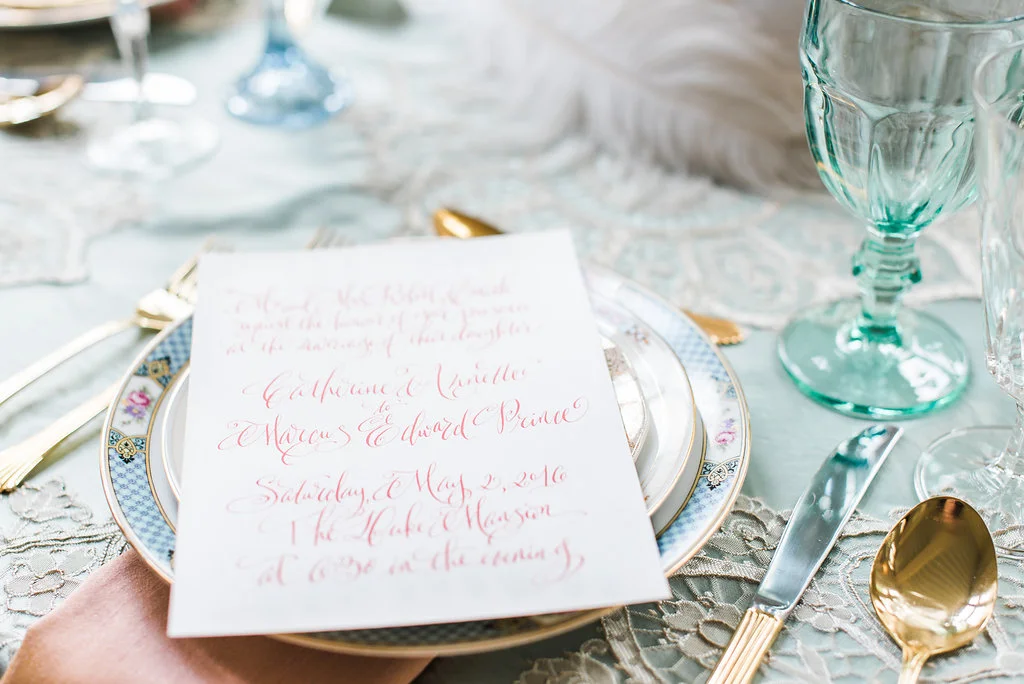 request the honor of your presence
at the marriage of their daughter
Catherine
to
Marcus Edward Prince
Saturday, May 2, 2016
The Duke Mansion
at 6:30 in the evening